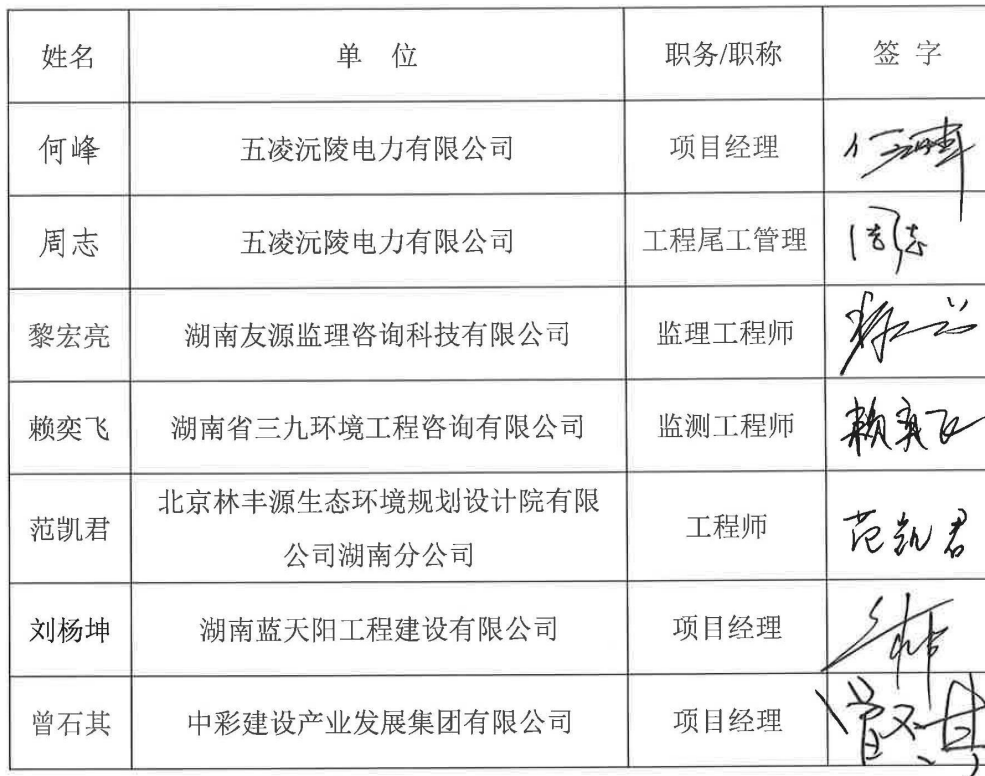 姓名 单 位 职务/职称 签 字
何峰 五凌沅陵电力有限公司 项目经理
周志 五凌沅陵电力有限公司 工程尾工管理 周志
黎宏亮 湖南友源监理咨询科技有限公司 监理工程师
赖奕飞 湖南省三九环境工程咨询有限公司 监测工程师 赖奕飞
范凯君 北京林丰源生态环境规划设计院有限
公司湖南分公司 工程师 范凯君
刘杨坤 湖南蓝天阳工程建设有限公司 项目经理
曾石其 中彩建设产业发展集团有限公司 项目经理